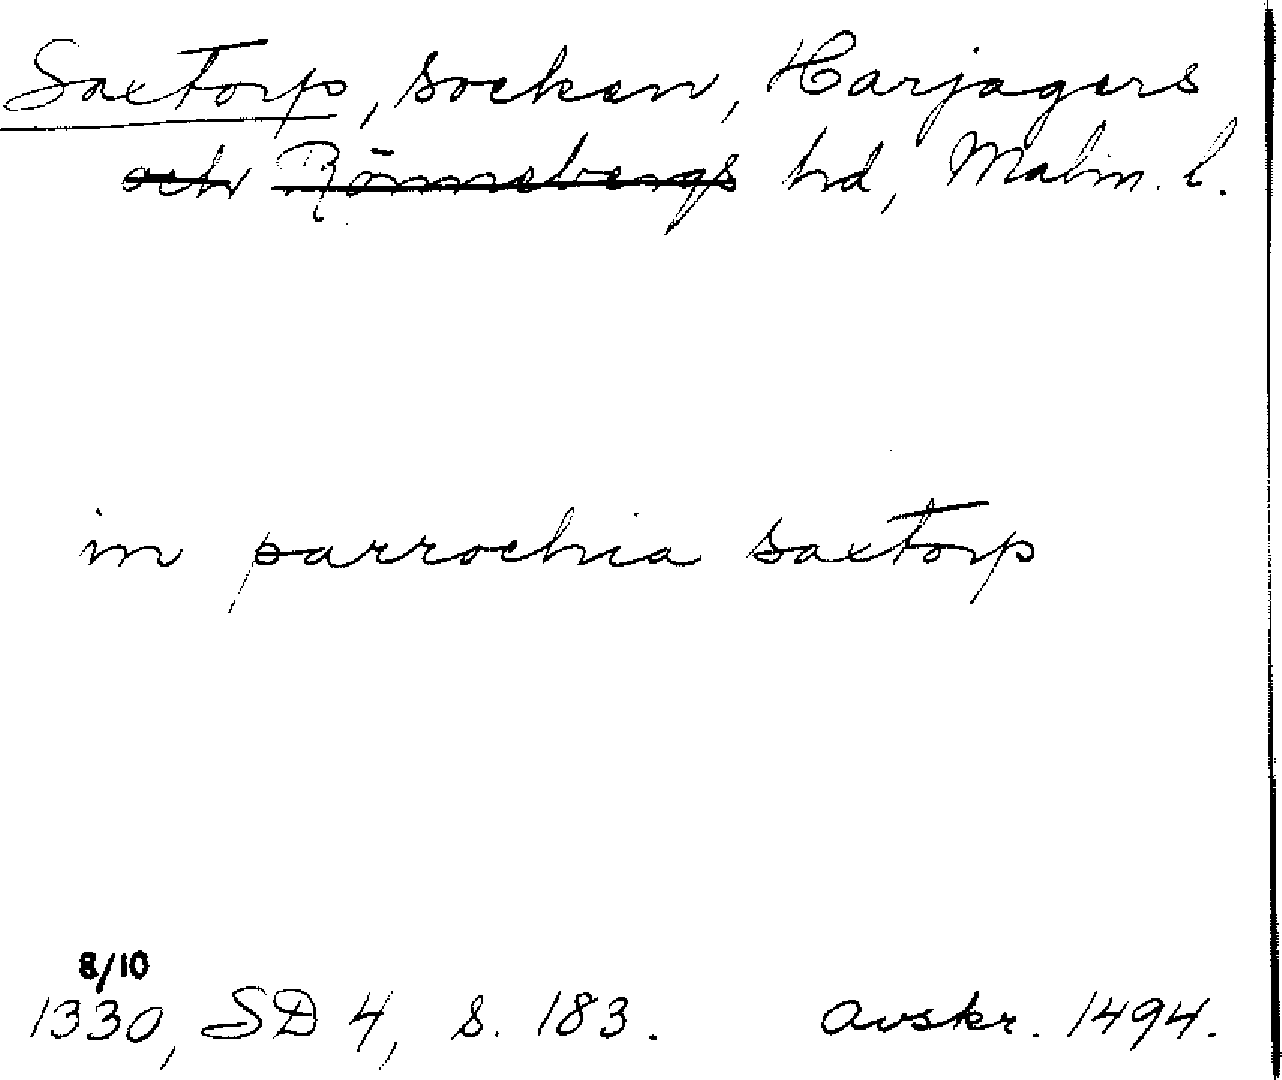 Saxtorp, socken, Harjagers
och Rönnebergs hd, Malm. l.
in parrochia saxtorp
8/10
1330, SD 4, s. 183. avskr. 1494.